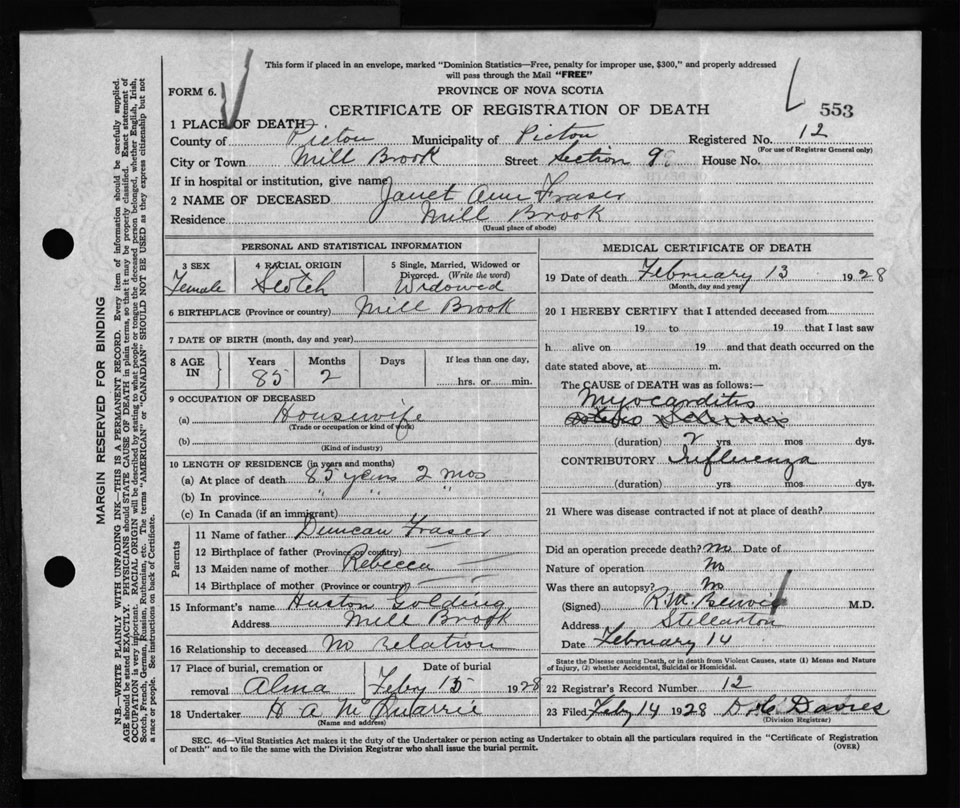 This form if placed in an envelope, marked "Dominion Statistics—Free, penalty for improper use, $300," and properly addressed
will pass through the Mail "FREE"
FORM 6.
PROVINCE OF NOVA SCOTIA
CERTIFICATE OF REGISTRATION OF DEATH
553
1 PLACE OF DEATH
County of Pictou Municipality of Pictou Registered No. 12
(For use of Registrar General only)
City or Town Mill Brook Street Section 9 House No.
If in hospital or institution, give name
2 NAME OF DECEASED Janet Ann Fraser
Residence Mill Brook
(Usual place of abode)
PERSONAL AND STATISTICAL INFORMATION
3 SEX 4 RACIAL ORIGIN 5 Single, Married, Widowed or
Divorced. (Write the word)
Female Scotch Widowed
6 BIRTHPLACE (Province or country) Mill Brook
7 DATE OF BIRTH (month, day and year)
8 AGE IN Years Months Days If less than one day,
85 2 hrs. or min.
9 OCCUPATION OF DECEASED
(a) Housewife
(Trade or occupation or kind of work)
(b)
(Kind of industry)
10 LENGTH OF RESIDENCE (in years and months)
(a) At place of death 85 years 2 mos
(b) In province " " "
(c) In Canada (if an immigrant)
Parents
11 Name of father Duncan Fraser
12 Birthplace of father (Province or country) —
13 Maiden name of mother Rebecca —
14 Birthplace of mother (Province or country) —
15 Informant's name Huston Golding
Address Mill Brook
16 Relationship to deceased No Relation
17 Place of burial, cremation or Date of burial
removal Alma Feby 15 1928
18 Undertaker H A McQuarrie
(Name and address)
MEDICAL CERTIFICATE OF DEATH
19 Date of death February 13 1928
(Month, day and year)
20 I HEREBY CERTIFY that I attended deceased from
19 to 19 that I last saw
h alive on 19 and that death occurred on the
date stated above, at m.
The CAUSE OF DEATH was as follows:—
Myocarditis
(duration) 2 yrs mos dys.
CONTRIBUTORY Influenza
(duration) yrs mos dys.
21 Where was disease contracted if not at place of death?
Did an operation precede death? No Date of
Nature of operation No
Was there an autopsy? No
(Signed) R. M. M.D.
Address Stellarton
Date February 14
State the Disease causing Death, or in death from Violent Causes, state (1) Means and Nature
of Injury, (2) whether Accidental, Suicidal or Homicidal.
22 Registrar's Record Number 12
23 Filed Feby 14 1928 Davies
(Division Registrar)
SEC. 46—Vital Statistics Act makes it the duty of the Undertaker or person acting as Undertaker to obtain all the particulars required in the "Certificate of Registration
of Death" and to file the same with the Division Registrar who shall issue the burial permit.
(OVER)
MARGIN RESERVED FOR BINDING
N.B.—WRITE PLAINLY WITH UNFADING INK—THIS IS A PERMANENT RECORD. Every item of information should be carefully supplied.
AGE should be stated EXACTLY. PHYSICIANS should STATE CAUSE OF DEATH in plain terms, so that it may be properly classified. Exact statement of
OCCUPATION is very important. RACIAL ORIGIN will be described by stating to what people or tongue the deceased person belonged, whether English, Irish,
Scotch, French, German, Russian, Ruthenian, etc. The terms "AMERICAN" or "CANADIAN" SHOULD NOT BE USED as they express citizenship but not
a race or people. See instructions on back of Certificate.